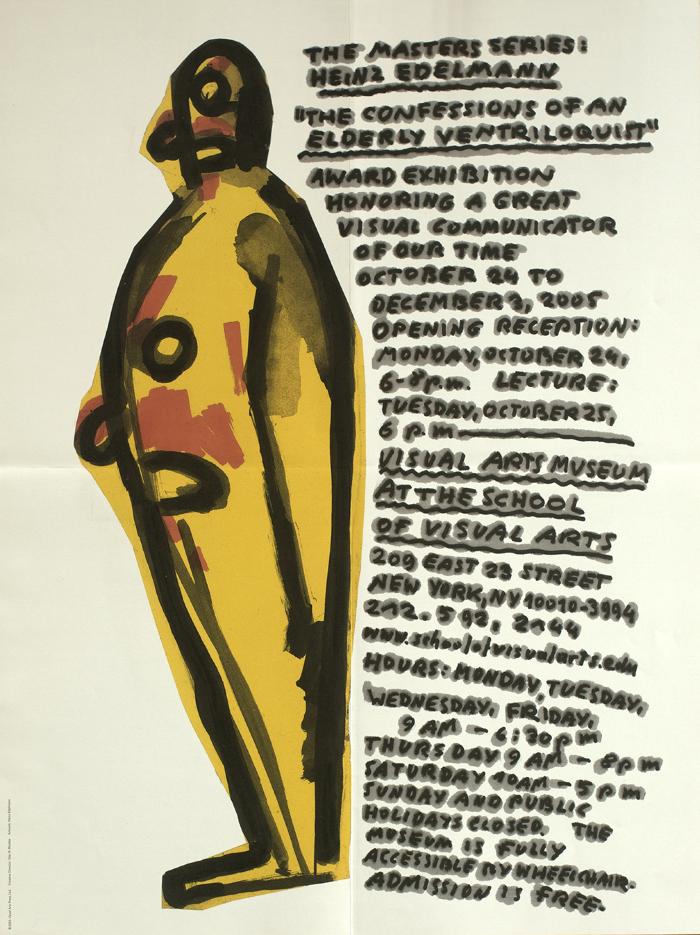 THE MASTERS SERIES:
HEINZ EDELMANN
"THE CONFESSIONS OF AN
ELDERLY VENTRILOQUIST"
AWARD EXHIBITION
HONORING A GREAT
VISUAL COMMUNICATOR
OF OUR TIME
OCTOBER 24 TO
DECEMBER 3, 2005
OPENING RECEPTION:
MONDAY, OCTOBER 24,
6-8 p.m. LECTURE:
TUESDAY, OCTOBER 25,
6 p m
VISUAL ARTS MUSEUM
AT THE SCHOOL
OF VISUAL ARTS
209 EAST 23 STREET
NEW YORK, NY 10010-3994
212. 592. 2144
www.schoolofvisualarts.edu
HOURS: MONDAY, TUESDAY,
WEDNESDAY, FRIDAY,
9 AM – 6:30 p m
THURSDAY 9 AM – 8 p m
SATURDAY 10 AM – 5 p m
SUNDAY AND PUBLIC
HOLIDAYS CLOSED. THE
MUSEUM IS FULLY
ACCESSIBLE BY WHEELCHAIR.
ADMISSION IS FREE.